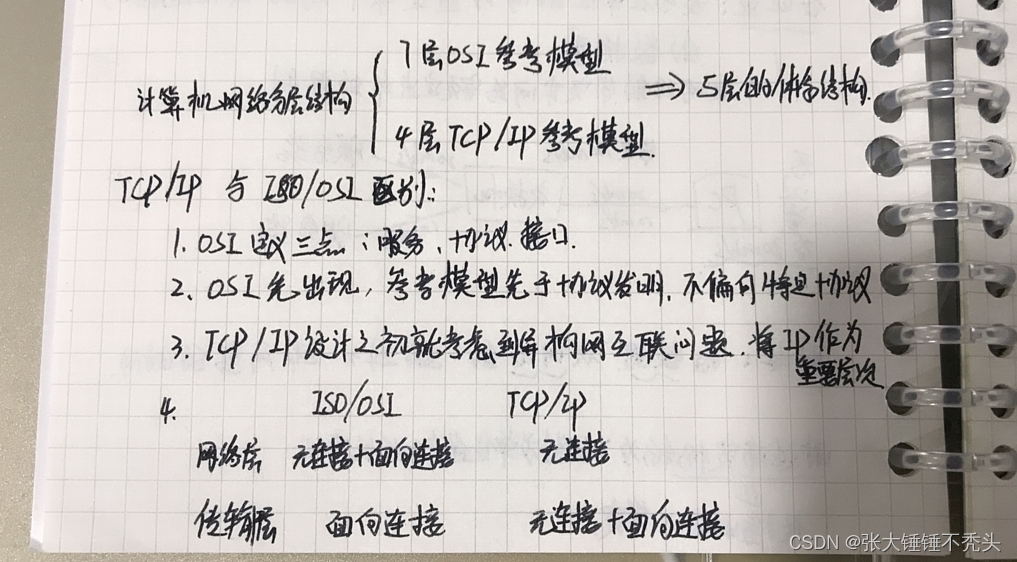 7层OSI参考模型
计算机网络分层结构 ⇒ 5层的体系结构.
4层TCP/IP参考模型.
TCP/IP 与 ISO/OSI 区别:
1. OSI定义三点:服务、协议、接口.
2. OSI先出现,参考模型先于协议发明,不偏向特定协议
3. TCP/IP设计之初就考虑到异构网互联问题,将IP作为
重要层次
4. ISO/OSI TCP/IP
网络层 无连接+面向连接 无连接
传输层 面向连接 无连接+面向连接
CSDN @张大锤锤不秃头